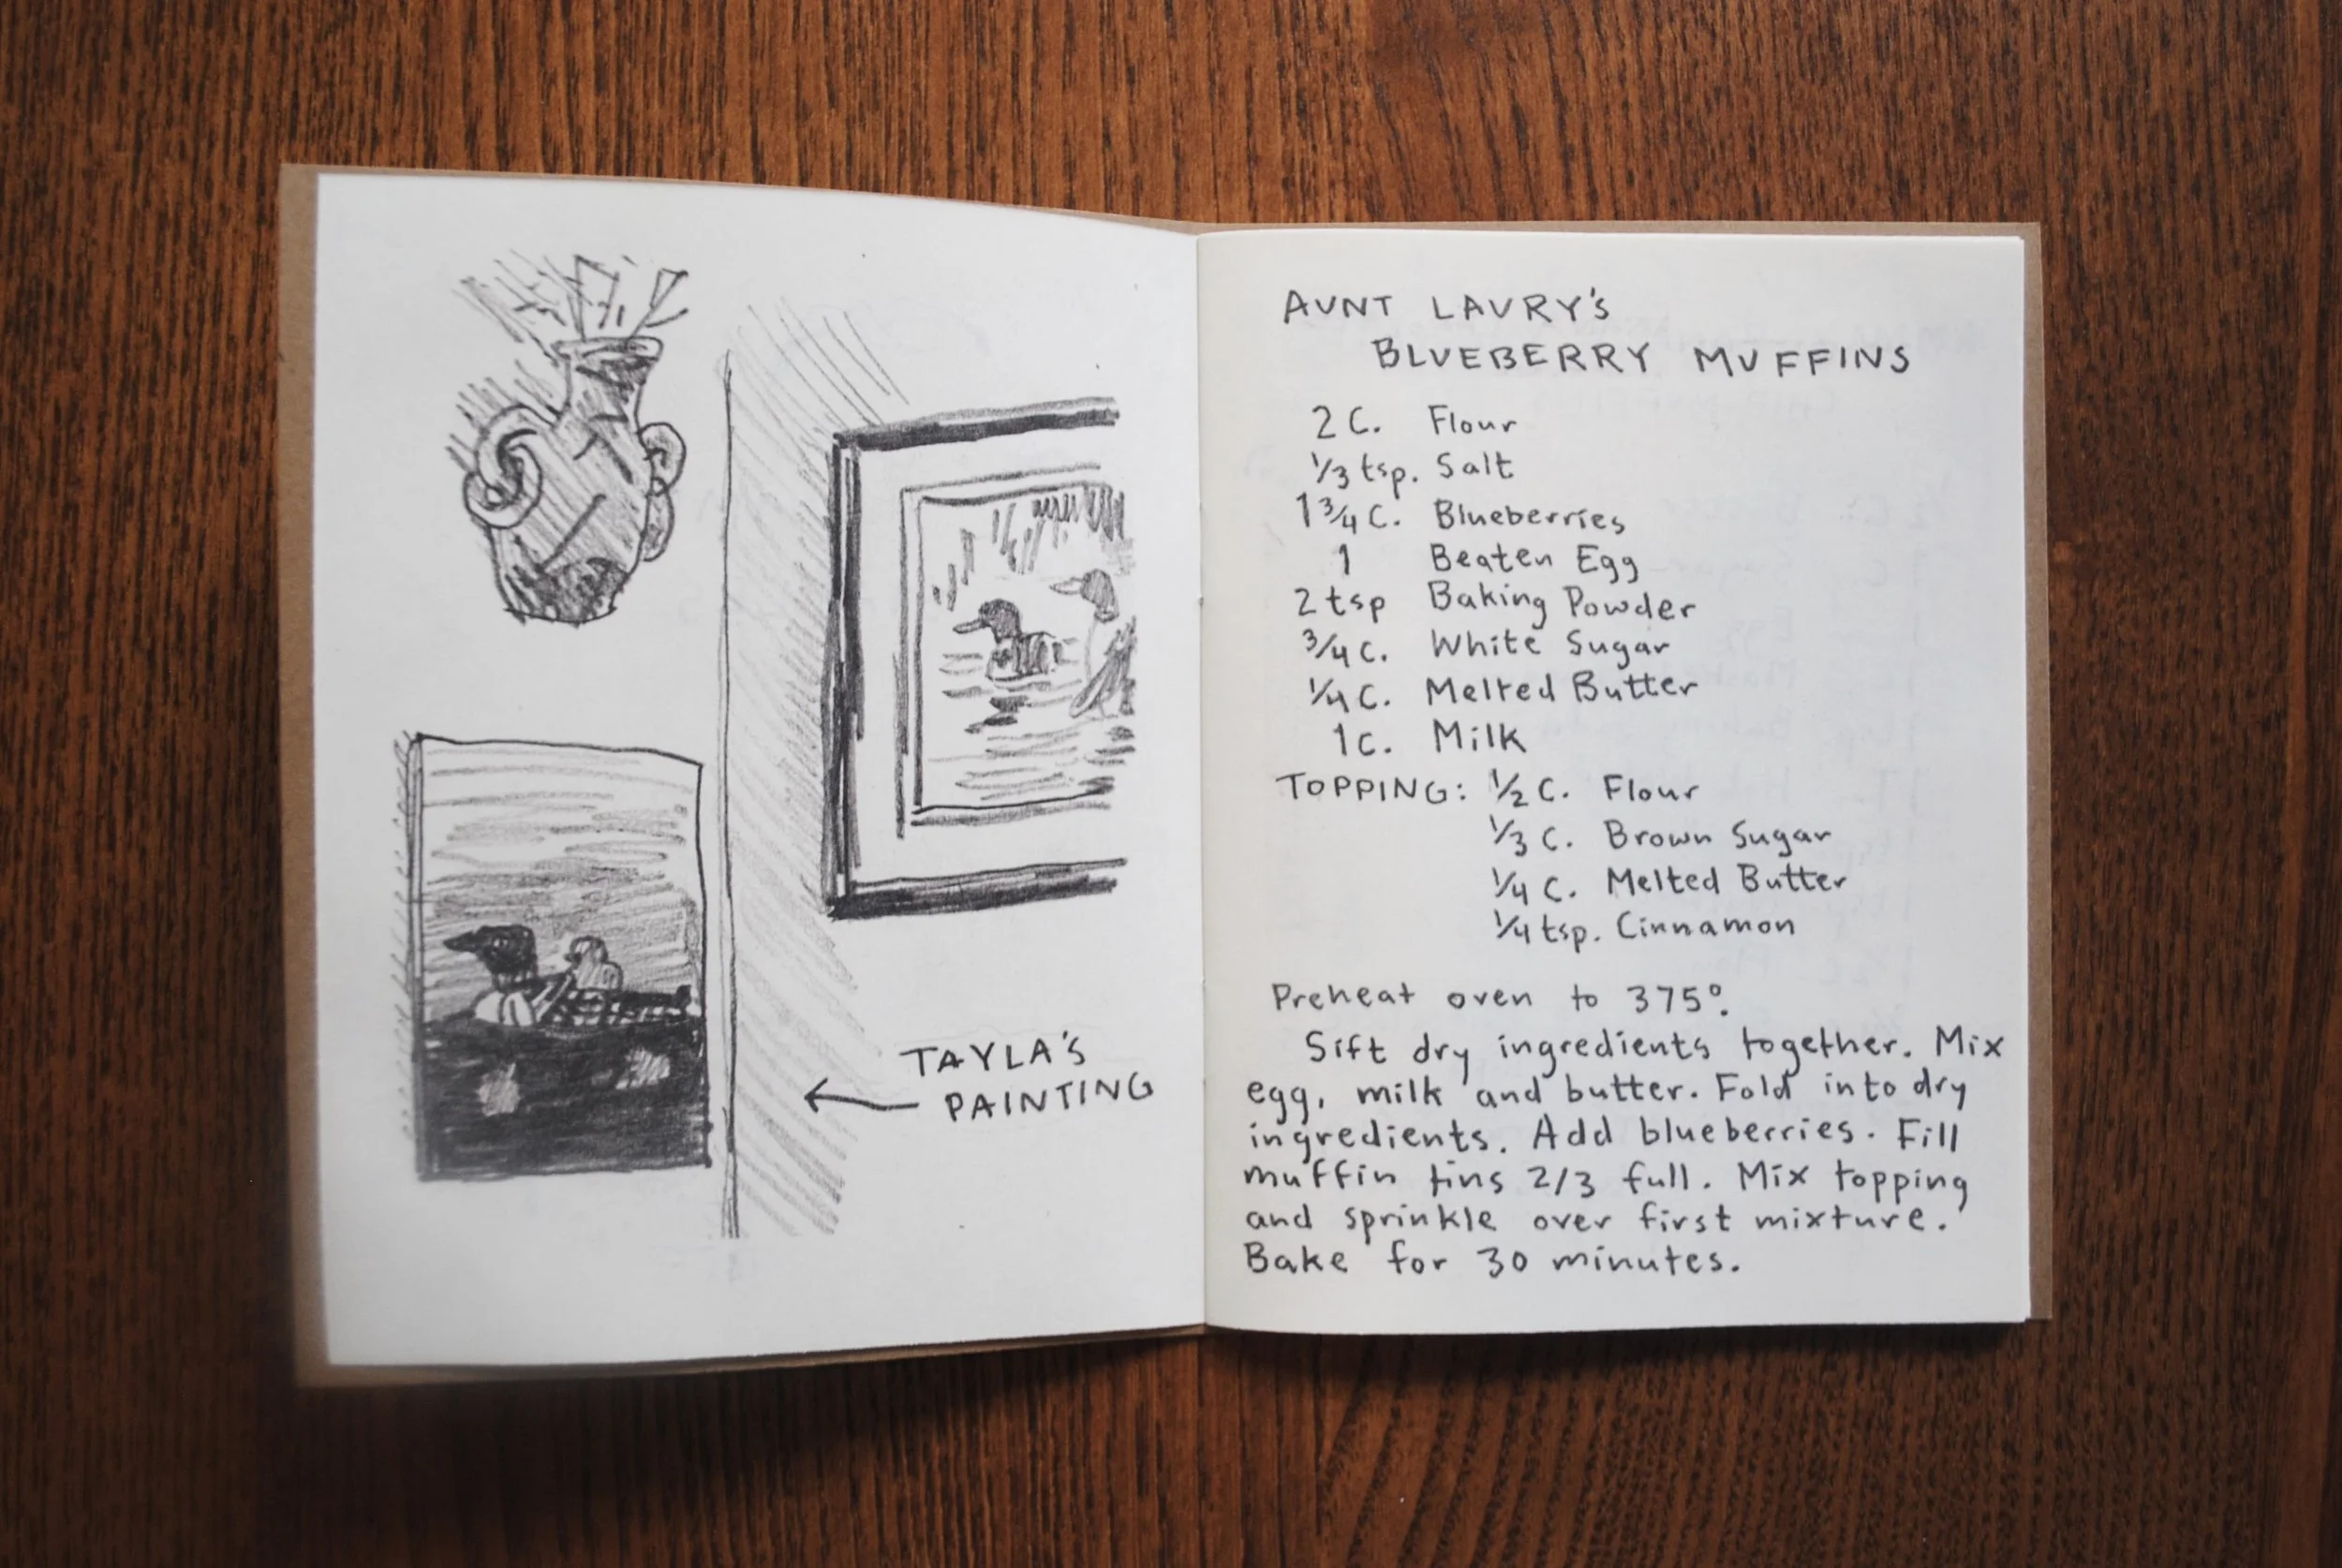 TAYLA'S
PAINTING
AUNT LAURY'S
BLUEBERRY MUFFINS
2 C. Flour
1/3 tsp. Salt
1 3/4 C. Blueberries
1 Beaten Egg
2 tsp Baking Powder
3/4 C. White Sugar
1/4 C. Melted Butter
1 C. Milk
TOPPING: 1/2 C. Flour
1/3 C. Brown Sugar
1/4 C. Melted Butter
1/4 tsp. Cinnamon
Preheat oven to 375°.
Sift dry ingredients together. Mix
egg, milk and butter. Fold into dry
ingredients. Add blueberries. Fill
muffin tins 2/3 full. Mix topping
and sprinkle over first mixture.
Bake for 30 minutes.